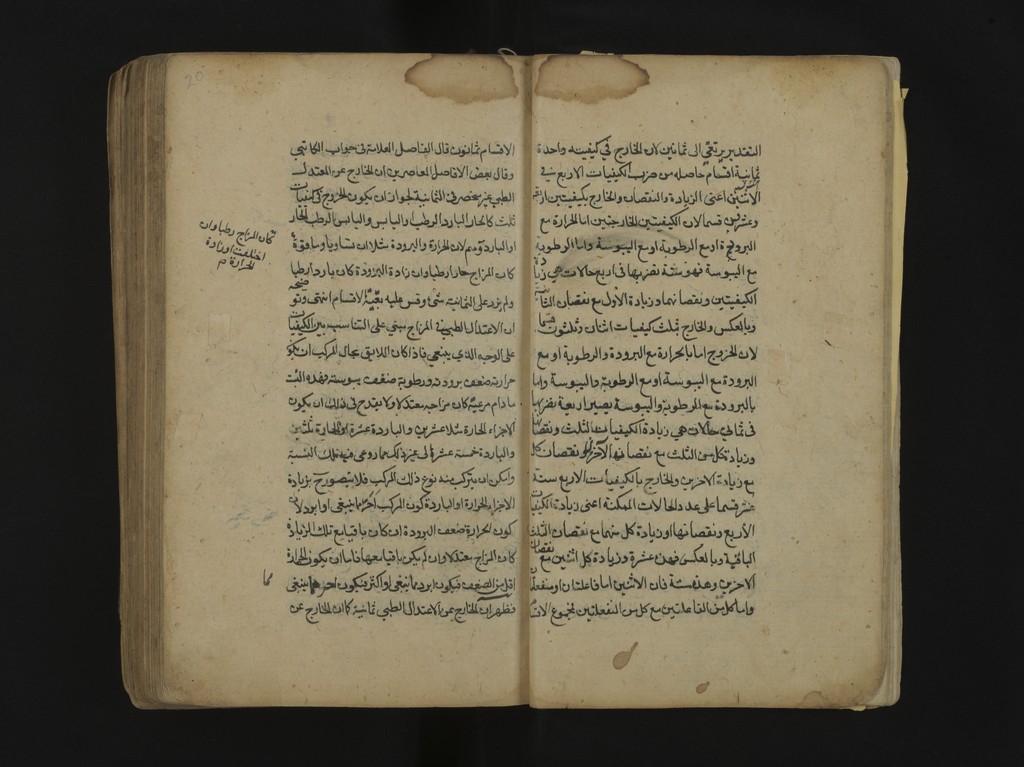 التقدير يرتقي الى ثمانين لان الخارج في كيفية واحدة
ثمانية اقسام حاصلة من ضرب الكيفيات الاربع في
الاثنين اعنى الزيادة والنقصان والخارج بكيفيتين
وعشرين قسما لان الكيفيتين الخارجتين اما الحرارة مع
البرودة او مع الرطوبة او مع اليبوسة واما الرطوبة
مع اليبوسة فهو ستة نضربها فى اربع حالات هي زيادة
الكيفيتين ونقصانهما وزيادة الاول مع نقصان الثانية
وبالعكس والخارج بثلث كيفيات اثنان وثلثون قسما
لان الخروج اما بالحرارة مع البرودة والرطوبة او مع
البرودة مع اليبوسة او مع الرطوبة واليبوسة واما
بالبرودة مع الرطوبة واليبوسة يصير اربعة نضربها
فى ثمانى حالات هى زيادة الكيفيات الثلث ونقصانها
وزيادة كل من الثلث مع نقصان الآخرين ونقصان كل
مع زيادة الآخرين والخارج بالكيفيات الاربع ستة
عشر قسما على عدد الحالات الممكنة اعنى زيادة الكيفيات
الأربع ونقصانها او زيادة كل منها مع نقصان الثلث
الباقية وبالعكس فهذه عشرة وزيادة كل اثنين مع نقصان
الاخرين وهذه ستة فان الاثنين اما فاعلتان او منفعلتان
واما كل من الفاعلتين مع كل من المنفعلتين فمجموع
الاقسام ثمانون قال الفاضل العلامة فى جواب الكاتبي
وقال بعض الافاضل المعاصرين ان الخارج عن المعتدل
الطبي غير منحصر فى الثمانية لجواز ان يكون الخروج فى كيفيات
ثلث كالحار البارد الرطب واليابس واليابس الرطب الحار
او البارد توهم لان الحرارة والبرودة مثلا ان تساويا وما فوقه
كان المزاج حارا رطبا وان زادة البرودة كان باردا رطبا
ولم يزد على الثمانية شئ وقس عليه بقية الاقسام انتهى
ان الاعتدال الطبي فى المزاج مبنى على التناسب بين الكيفيات
على الوجه الذى ينبغى فاذا كان اللايق بحال المركب ان يكون
حرارته ضعف برودته ورطوبته ضعف يبوسته فهذه النسبة
ما دام مرعية كان مزاجه معتدلا ولا يقدح فى ذلك ان يكون
الاجزاء الحارة مثلا عشرين والباردة عشرة او الحارة ثلثين
والباردة خمسة عشر الى غير ذلك مما روعى فيه تلك النسبة
وامكن ان يتركب منه نوع ذلك المركب فلا يتصور ح بزيادة
الاجزاء الحرارة او الباردة كون المركب احر مما ينبغى او ابرد لان
كون الحرارة ضعف البرودة ان كان باقيا مع تلك الزيادة
كان المزاج معتدلا وان لم يكن باقيا معها فاما ان يكون الحرارة
اقل من الضعف فيكون ابرد مما ينبغى او اكثر فيكون احر مما ينبغى
فظهر ان الخارج عن الاعتدال الطبي ثمانية كما ان الخارج عن
كان المزاج رطبا وان
اختلفت او زادة
الحرارة م
20